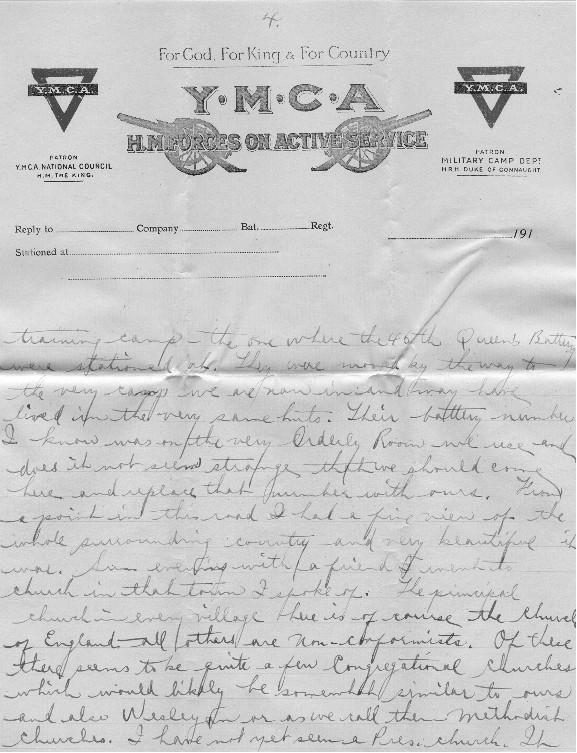 4.
For God, For King & For Country
Y·M·C·A
H.M. FORCES ON ACTIVE SERVICE
Y.M.C.A.
PATRON
Y.M.C.A. NATIONAL COUNCIL
H.M. THE KING.
Y.M.C.A.
PATRON
MILITARY CAMP DEPT
H.R.H. DUKE OF CONNAUGHT
Reply to Company Bat. Regt. 191
Stationed at
training camp - the one where the 46th Queen's Battery
were stationed at. They were moved by the way to
the very camp we are now in and may have
lived in the very same huts. Their battery number
I know was on the very Orderly Room we use and
does it not seem strange that we should come
here and replace that number with ours. From
a point in this road I had a fine view of the
whole surrounding country and very beautiful it
was. Sun evening with a friend I went to
church in that town I spoke of. The principal
church in every village here is of course the Church
of England all others are Non-conformists. Of these
there seems to be quite a few Congregational Churches
which would likely be somewhat similar to ours
and also Wesleyan or as we call them Methodist
Churches. I have not yet seen a Pres. church. It